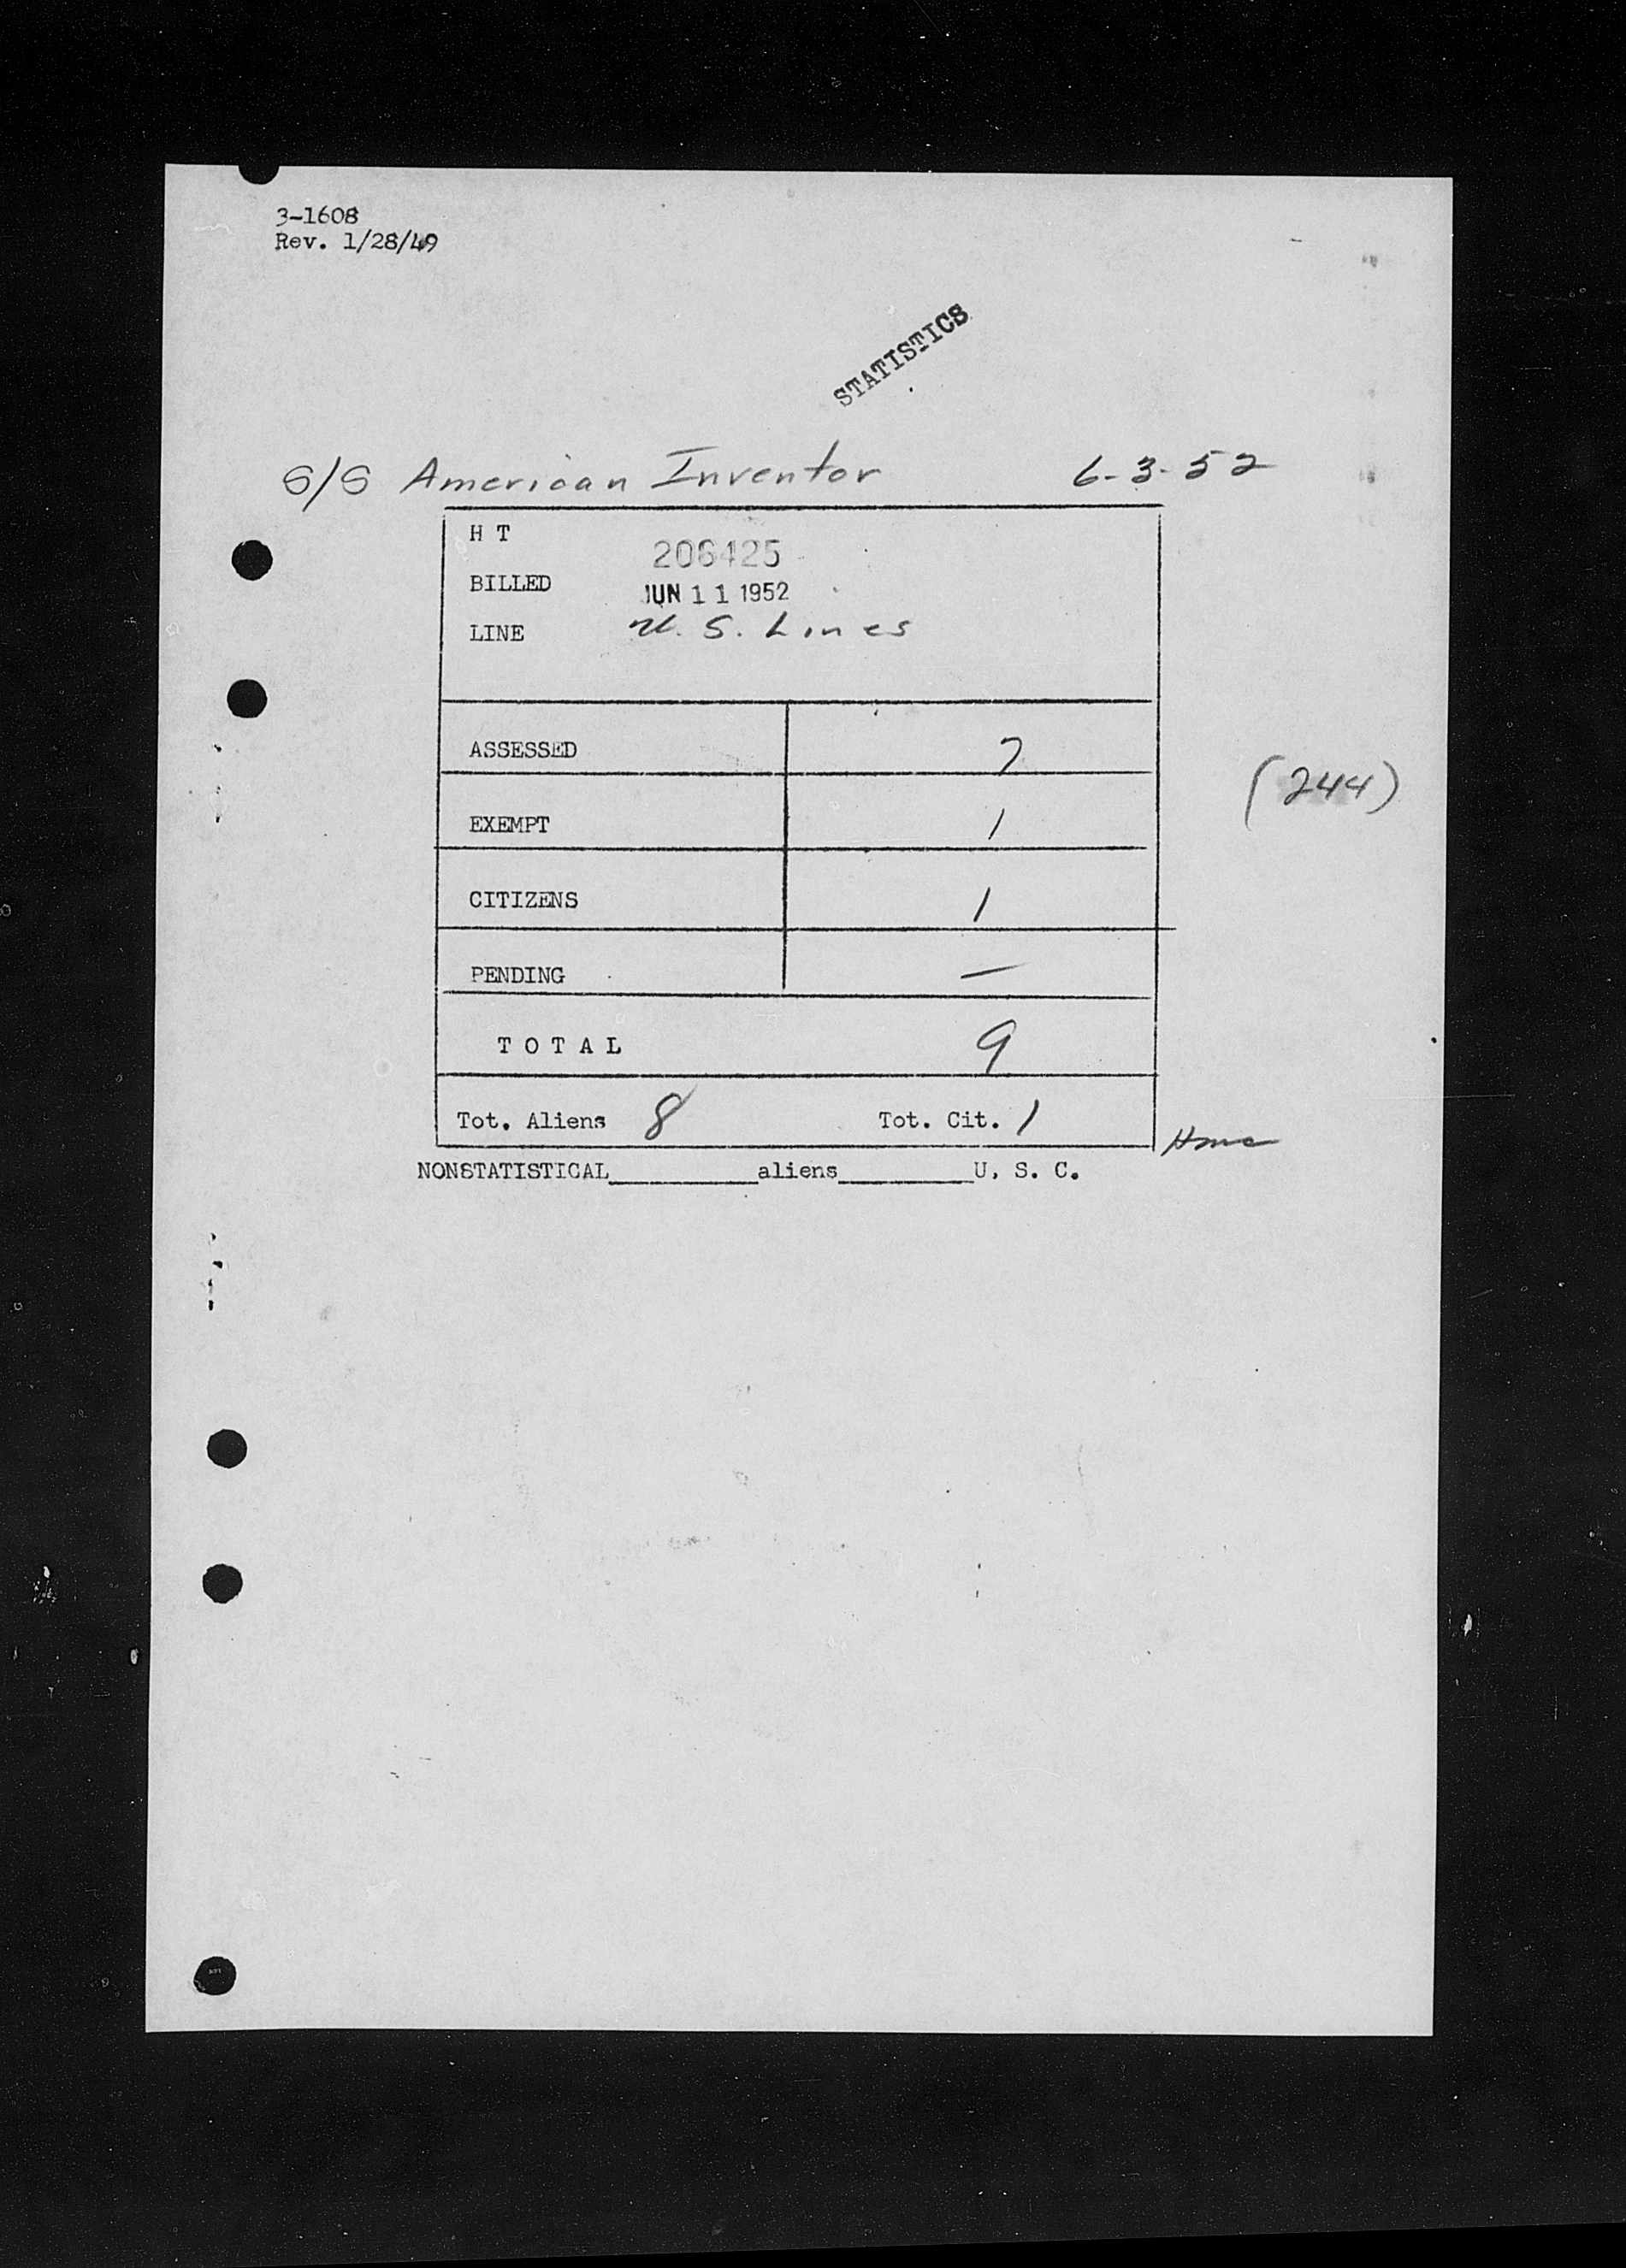 3-1608
Rev. 1/28/49
STATISTICS
S/S American Inventor 6-3-52
H T 206425
BILLED JUN 11 1952
LINE U. S. Lines
ASSESSED 7
(244)
EXEMPT 1
CITIZENS 1
PENDING —
T O T A L 9
Tot. Aliens 8 Tot. Cit. 1
NONSTATISTICAL__________aliens_________U. S. C.